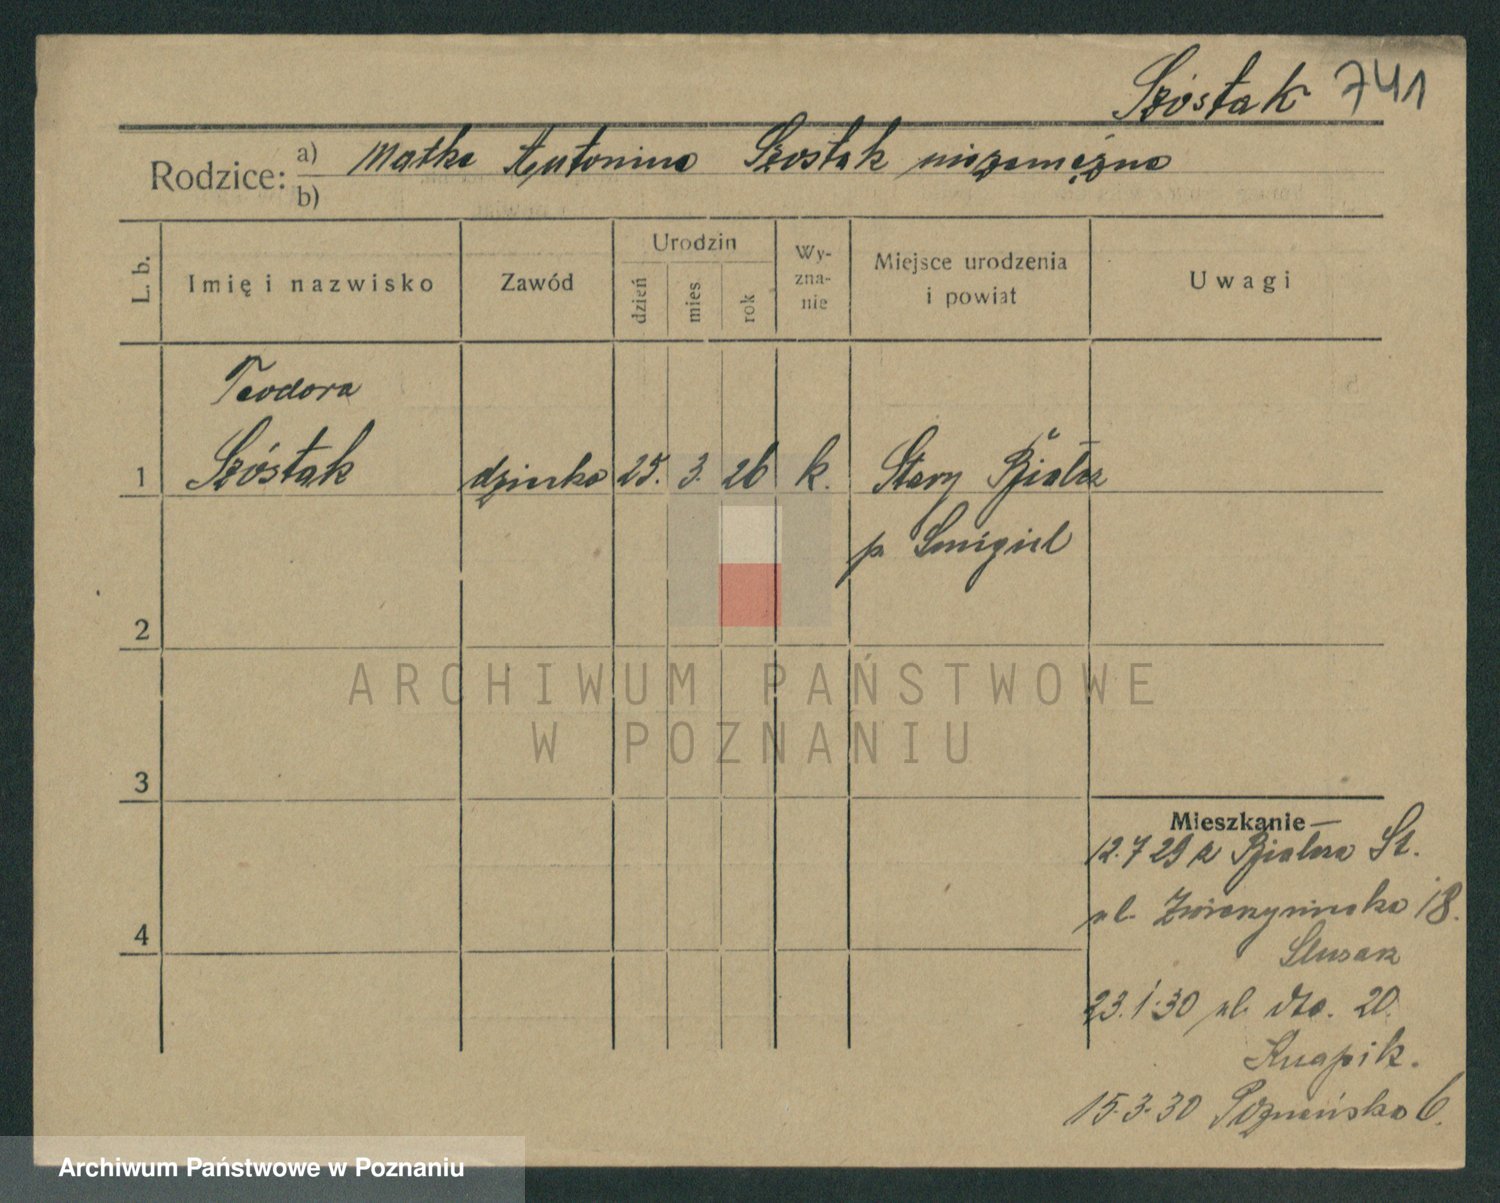 Szóstak 741
Rodzice: a) Matka Antonina Szostak niezamężna
b)
L. b.
Imię i nazwisko
Zawód
Urodzin
dzień
mies.
rok
Wy-
zna-
nie
Miejsce urodzenia
i powiat
Uwagi
Teodora
1 Szóstak dziecko 25. 3. 26 k. Stary Białcz
p. Śmigiel
2
ARCHIWUM PAŃSTWOWE
W POZNANIU
3
Mieszkanie
12.7 29 z Białcza St.
ul. Zwierzyniecka 18.
4
Ślusarz
23.1.30 ul. dto. 20.
Knapik.
15.3.30 Poznańska 6.
Archiwum Państwowe w Poznaniu